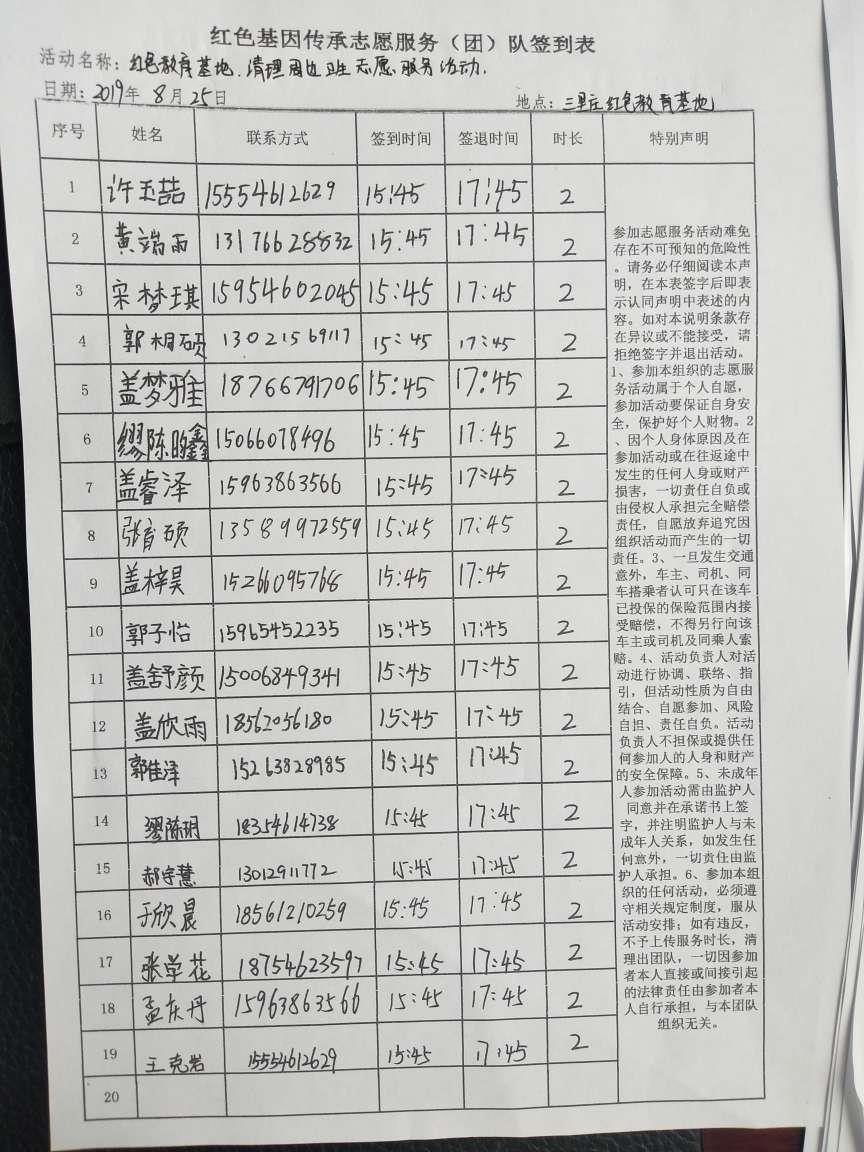 红色基因传承志愿服务（团）队签到表
活动名称：红色教育基地.清理周边卫生志愿服务活动.
日期：2019年 8月 25日 地点：三里庄红色教育基地
序号 姓名 联系方式 签到时间 签退时间 时长 特别声明
1 许玉喆 15554612629 15:45 17:45 2
2 黄端雨 13176628832 15:45 17:45 2
3 宋梦琪 15954602045 15:45 17:45 2
4 郭桐硕 13021569117 15:45 17:45 2
5 盖梦雅 18766791706 15:45 17:45 2
6 缪陈昀鑫 15066078496 15:45 17:45 2
7 盖睿泽 15963863566 15:45 17:45 2
8 张育硕 13589972559 15:45 17:45 2
9 盖梓昊 15266095768 15:45 17:45 2
10 郭子怡 15965452235 15:45 17:45 2
11 盖舒颜 15006849341 15:45 17:45 2
12 盖欣雨 18562056180 15:45 17:45 2
13 郭佳泽 15263828985 15:45 17:45 2
14 缪陈玥 18354614738 15:45 17:45 2
15 郝守慧 13012911772 15:45 17:45 2
16 于欣晨 18561210259 15:45 17:45 2
17 张单花 18754623597 15:45 17:45 2
18 孟庆丹 15963863566 15:45 17:45 2
19 王克岩 15554612629 15:45 17:45 2
20
参加志愿服务活动难免
存在不可预知的危险性
。请务必仔细阅读本声
明，在本表签字后即表
示认同声明中表述的内
容。如对本说明条款存
在异议或不能接受，请
拒绝签字并退出活动。
1、参加本组织的志愿服
务活动属于个人自愿，
参加活动要保证自身安
全，保护好个人财物。2
、因个人身体原因及在
参加活动或在往返途中
发生的任何人身或财产
损害，一切责任自负或
由侵权人承担完全赔偿
责任，自愿放弃追究因
组织活动而产生的一切
责任。3、一旦发生交通
意外，车主、司机、同
车搭乘者认可只在该车
已投保的保险范围内接
受赔偿，不得另行向该
车主或司机及同乘人索
赔。4、活动负责人对活
动进行协调、联络、指
引，但活动性质为自由
结合、自愿参加、风险
自担、责任自负。活动
负责人不担保或提供任
何参加人的人身和财产
的安全保障。5、未成年
人参加活动需由监护人
同意并在承诺书上签
字，并注明监护人与未
成年人关系，如发生任
何意外，一切责任由监
护人承担。6、参加本组
织的任何活动，必须遵
守相关规定制度，服从
活动安排；如有违反，
不予上传服务时长，清
理出团队，一切因参加
者本人直接或间接引起
的法律责任由参加者本
人自行承担，与本团队
组织无关。